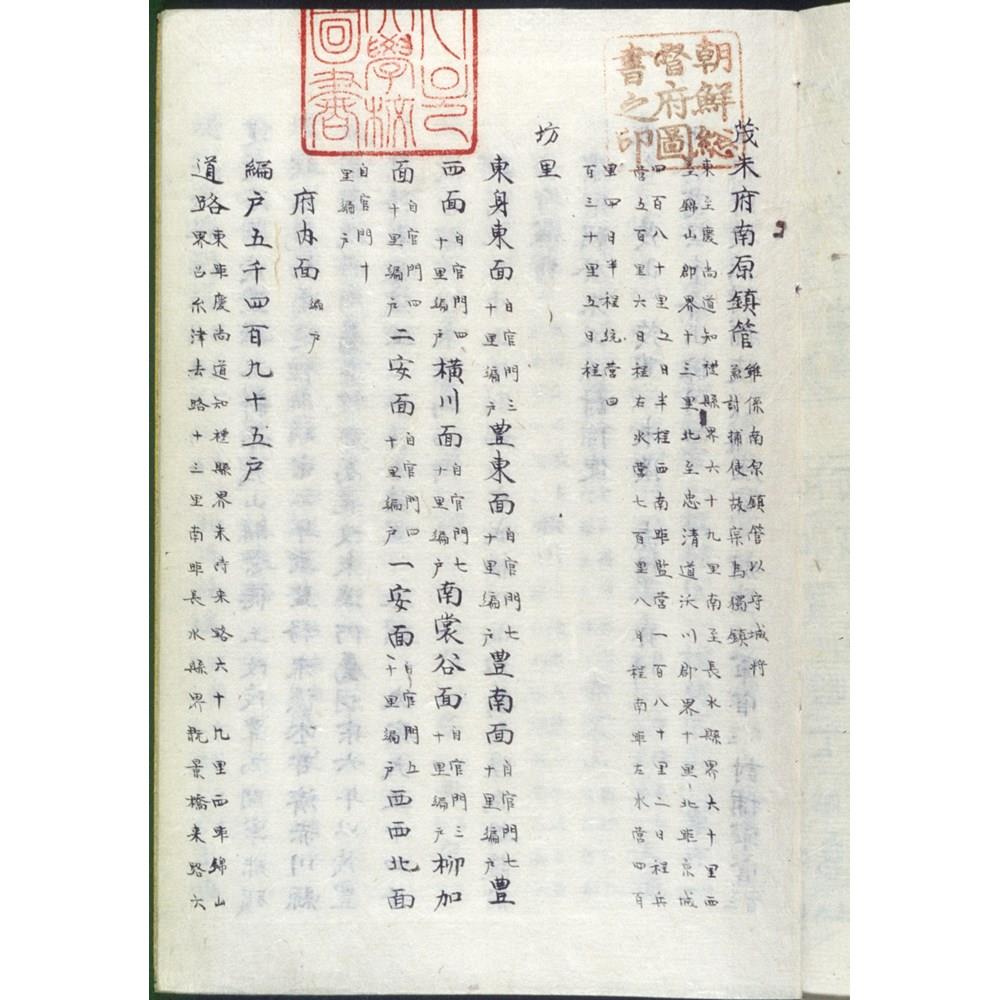 朝鮮総
督府圖
書之印
大學校
圖書
茂朱府南原鎮管 雖係南原鎮管以守城將
兼討捕使故案爲獨鎮
東至慶尚道知禮縣界六十九里南至長水縣界六十里西
至錦山郡界十三里北至忠清道沃川郡界十里北距京城
四百八十里五日半程西南距監營一百八十里二日程兵
營五百里六日程右水營七百里八日程南距左水營四百
里四日半程統營四
百三十里五日程
坊里
東身東面 自官門三十里編戶 豊東面 自官門七十里編戶 豊南面 自官門七十里編戶 豊
西面 自官門四十里編戶 橫川面 自官門七十里編戶 南裳谷面 自官門三十里編戶 柳加
面 自官門四十里編戶 二安面 自官門四十里編戶 一安面 自官門五十里編戶 西西北面
自官門十里編戶
府內面 編戶
編戶五千四百九十五戶
道路 東距慶尚道知禮縣界朱峙來路六十九里西距錦山
界召尒津去路十三里南距長水縣界既景橋來路六